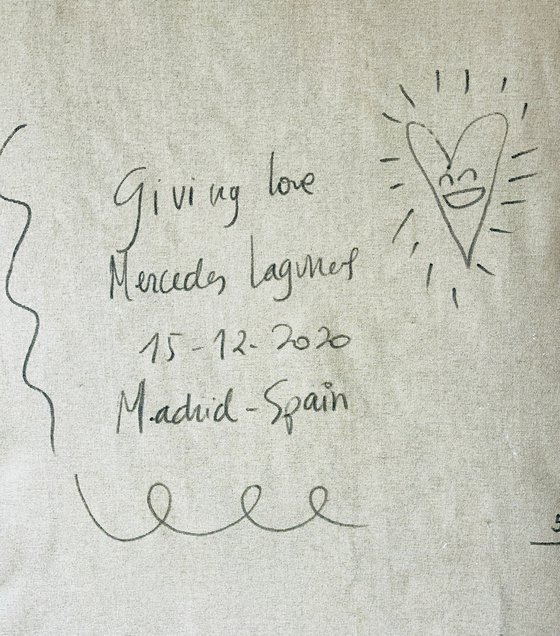 Giving love
Mercedes Lagunes
15-12-2020
Madrid - Spain